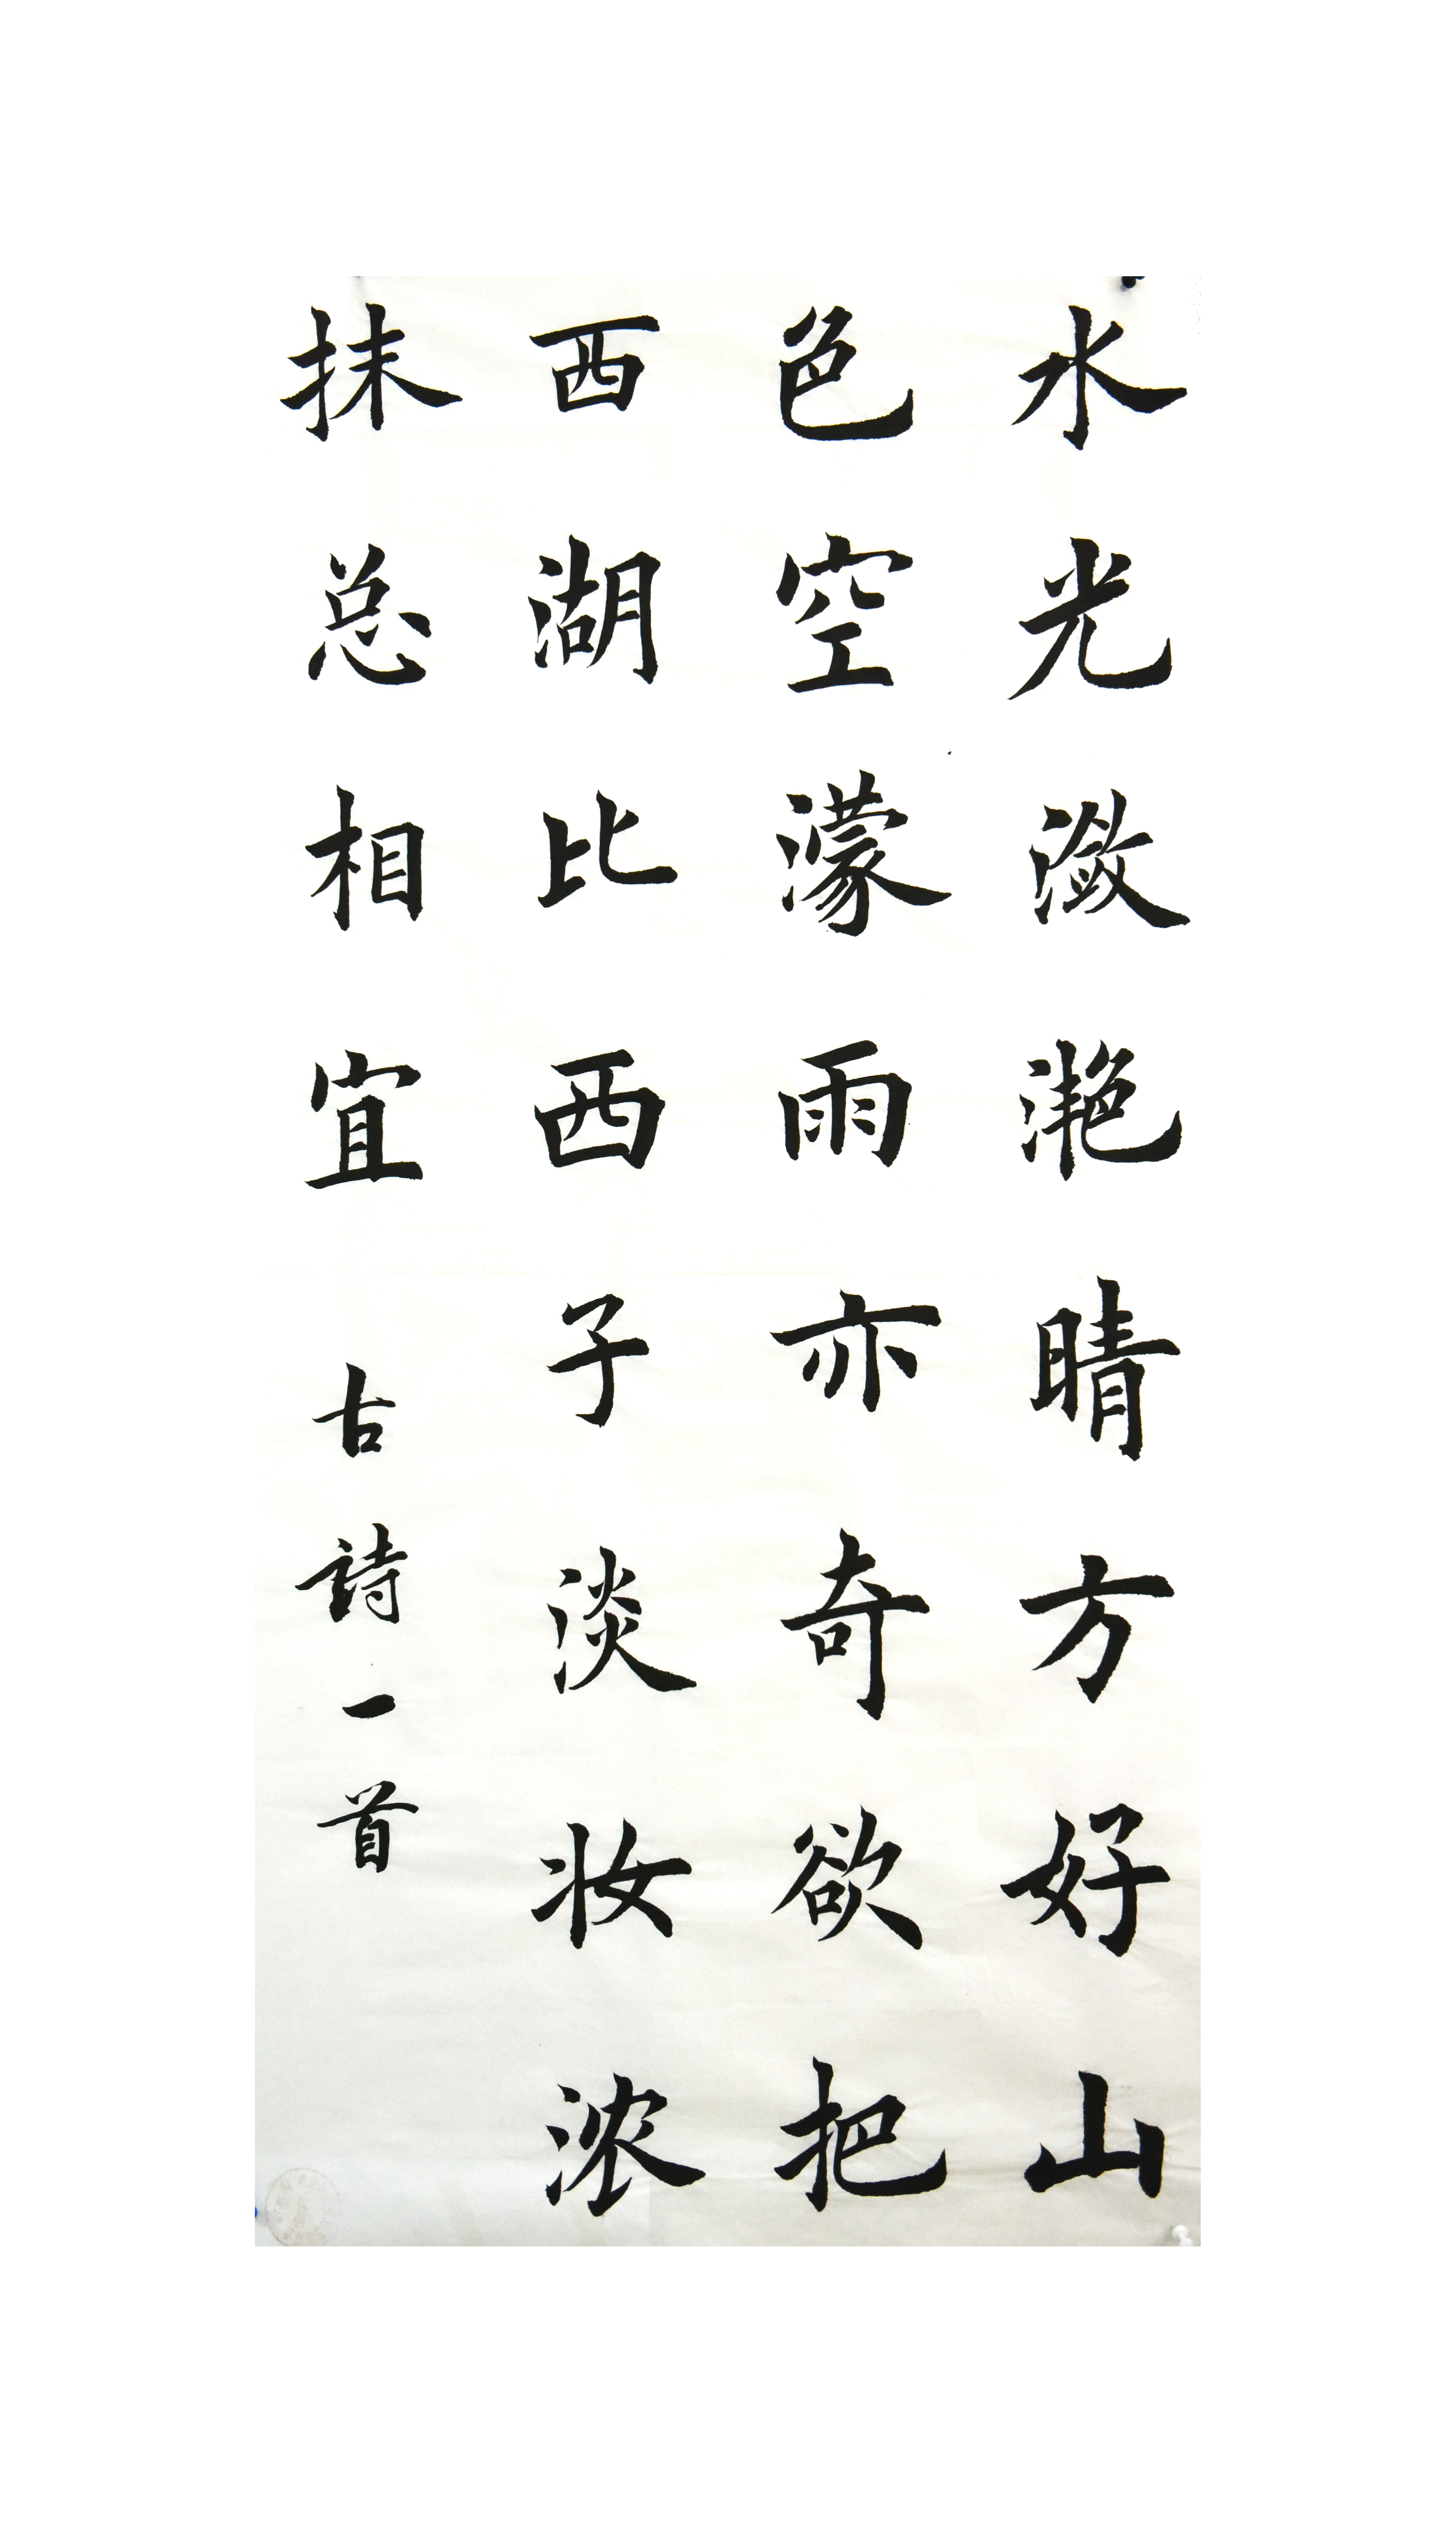 水光潋滟晴方好山
色空濛雨亦奇欲把
西湖比西子淡妆浓
抹总相宜 古詩一首